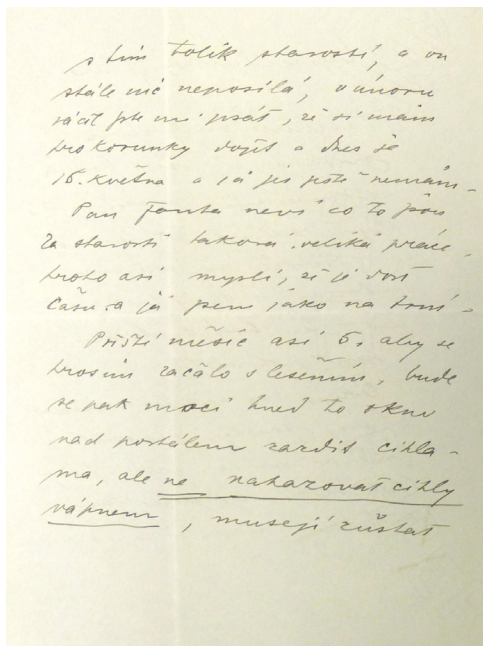 s tím tolik starostí, a on
stále nic neposílá, v únoru
ráčil jste mi psát, že si mám
pro korunky dojít a dnes je
15. května a já jis ještě nemám –
Pan Fanta neví co to jsou
za starosti taková veliká práce,
proto asi myslí, že je dost
času a já jsem jako na trní –
Příští měsíc asi 5. aby se
prosím začalo s lešením, bude
se pak moci hned to okno
nad portálem zazdít cihla-
ma, ale ne nahazovat cihly
vápnem, musejí zůstat